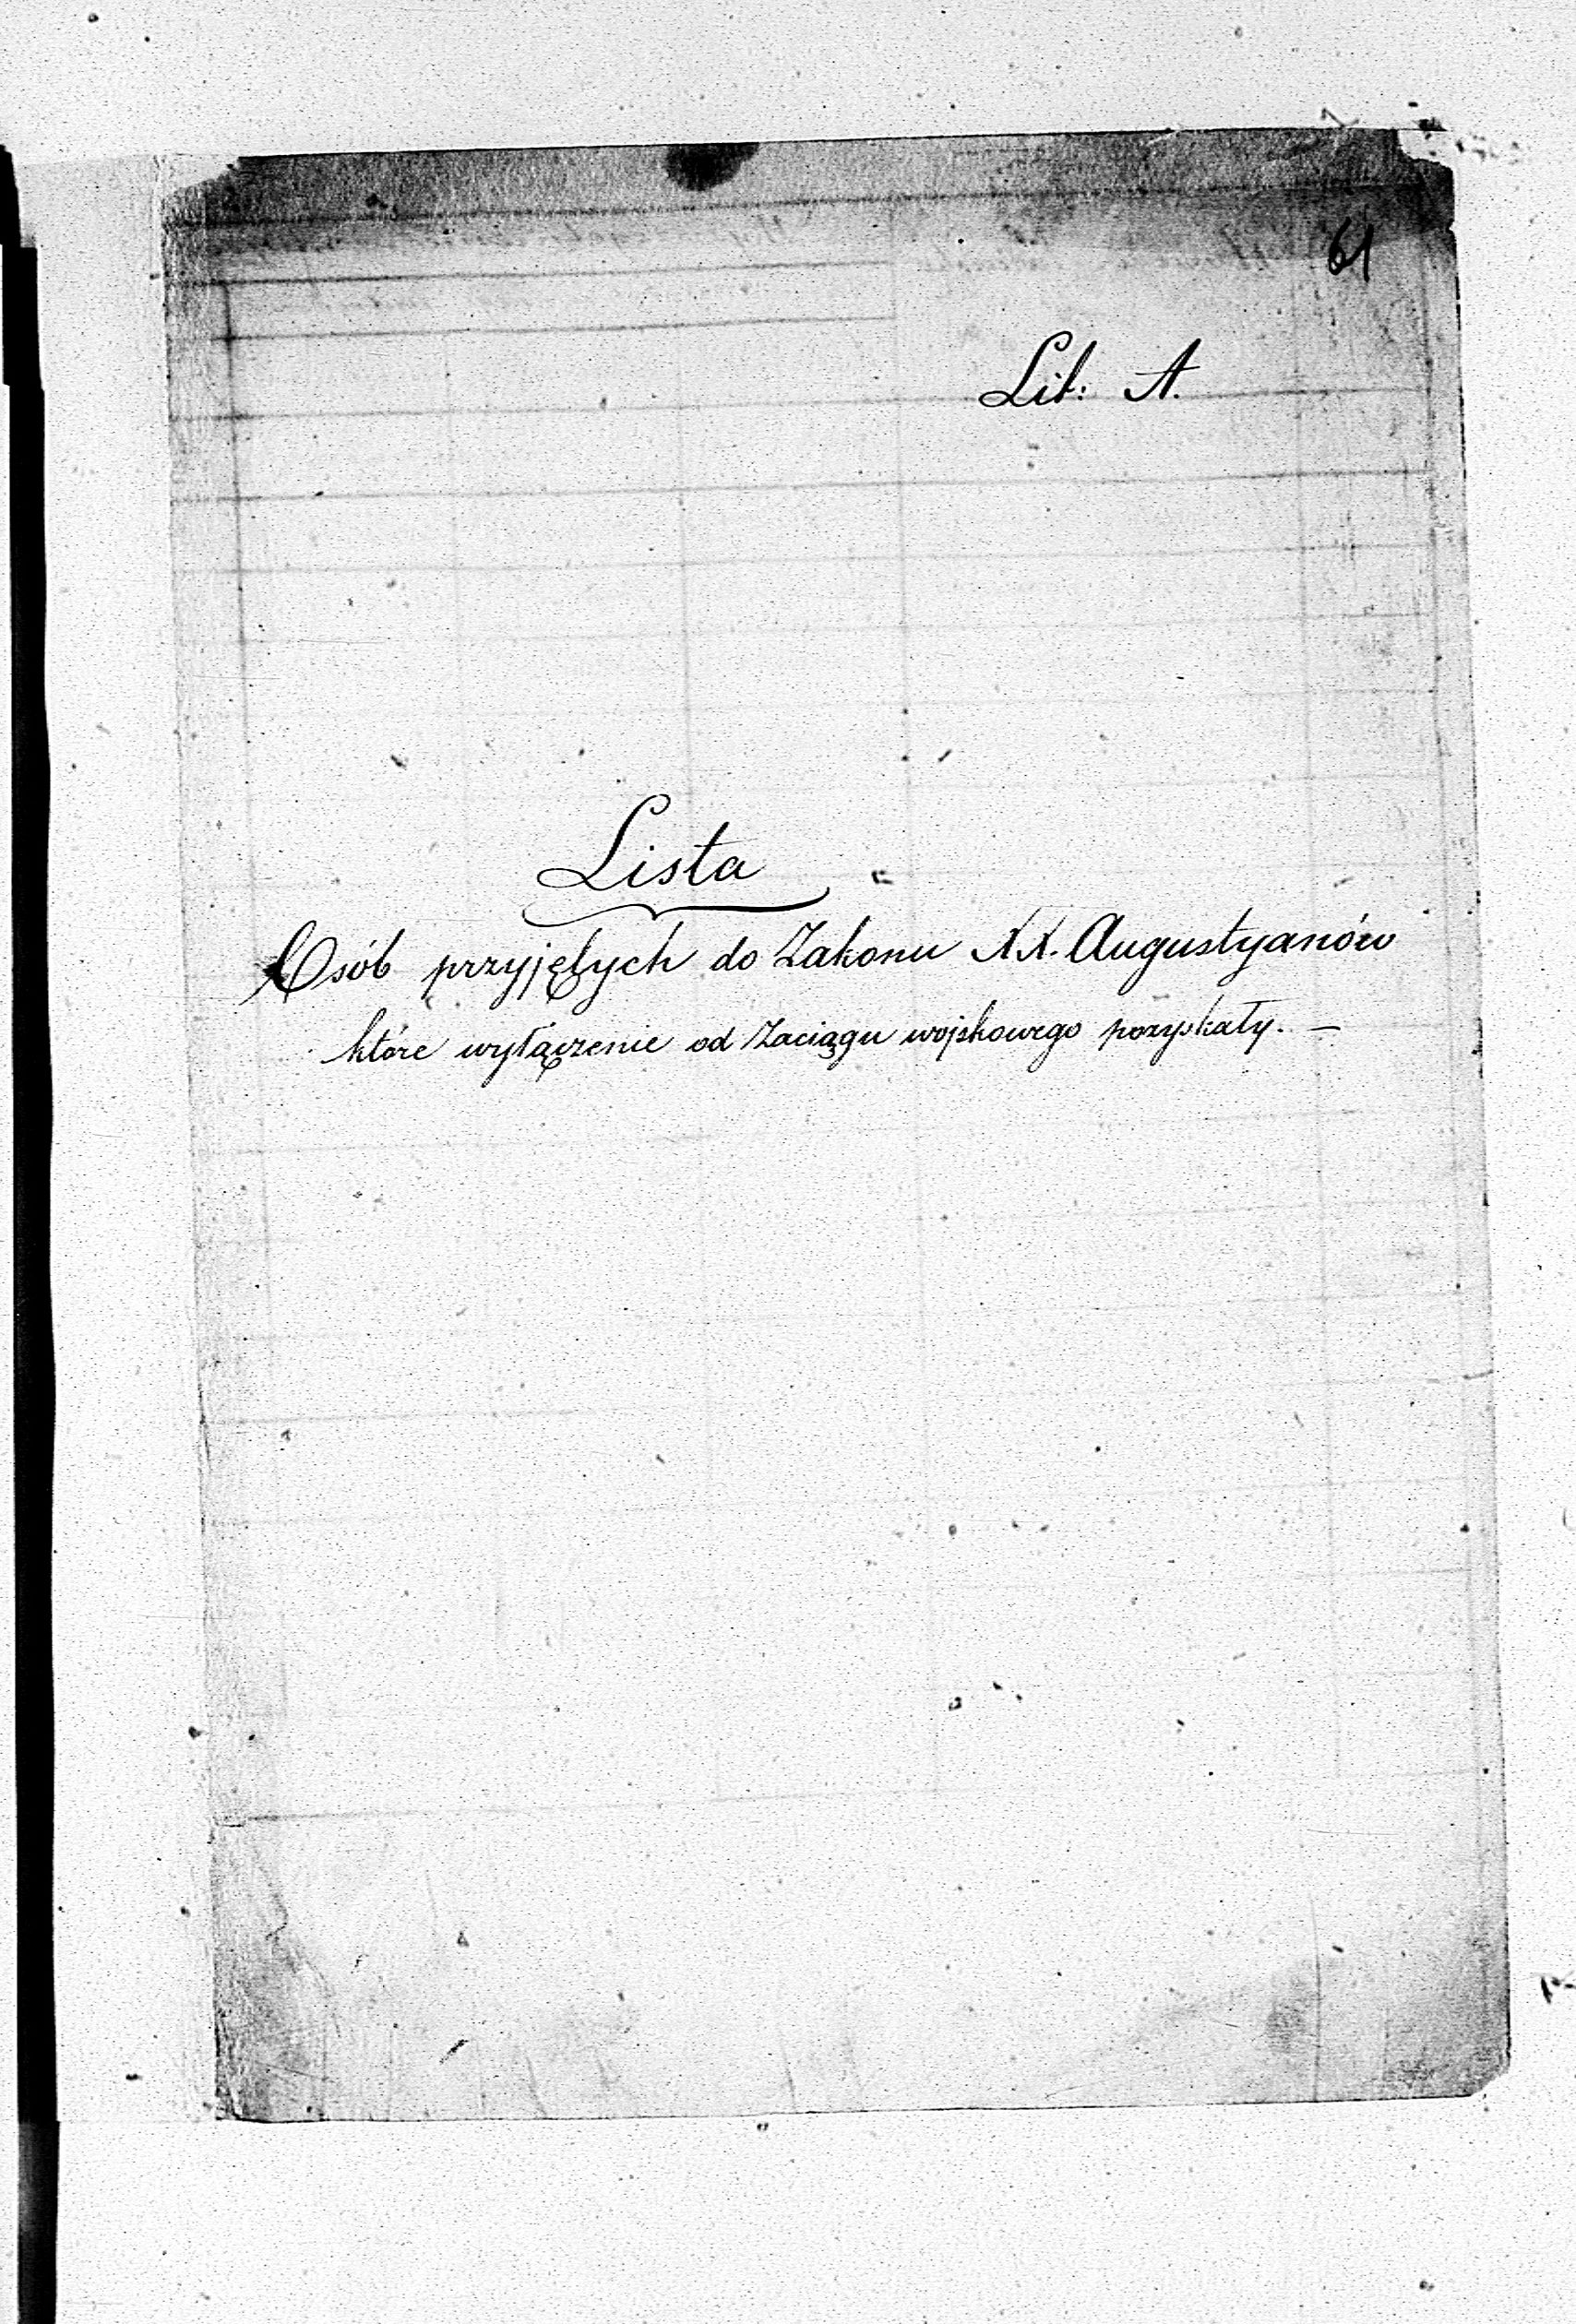 61
Lit: A.
Lista
Osób przyjętych do Zakonu XX. Augustyanów
które wyłączenie od Zaciągu wojskowego pozyskały. —